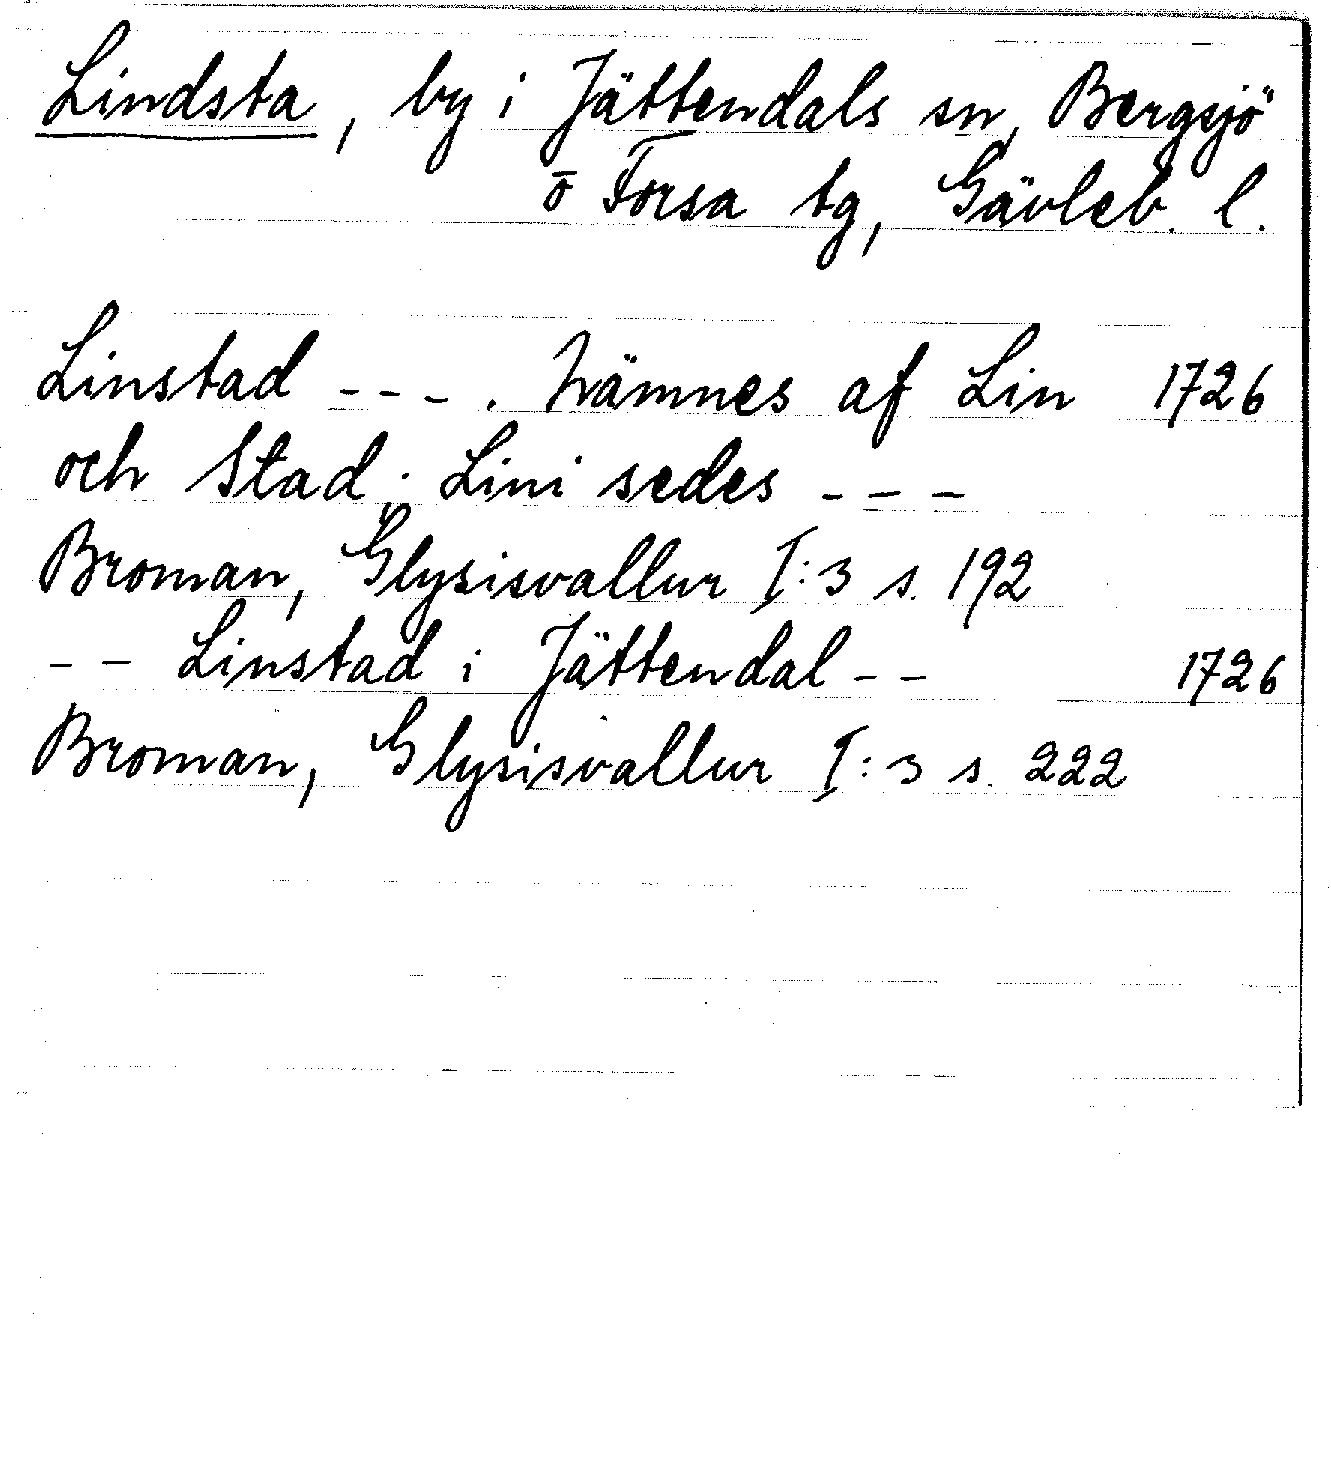 Lindsta, by i Jättendals sn, Bergsjö
o Forsa tg, Gävleb. l.
Linstad - - - . Nämnes af Lin 1726
och Stad; Lini sedes - - -
Broman, Glysisvallur I:3 s. 192
- - Linstad i Jättendal - - 1726
Broman, Glysisvallur I:3 s. 222